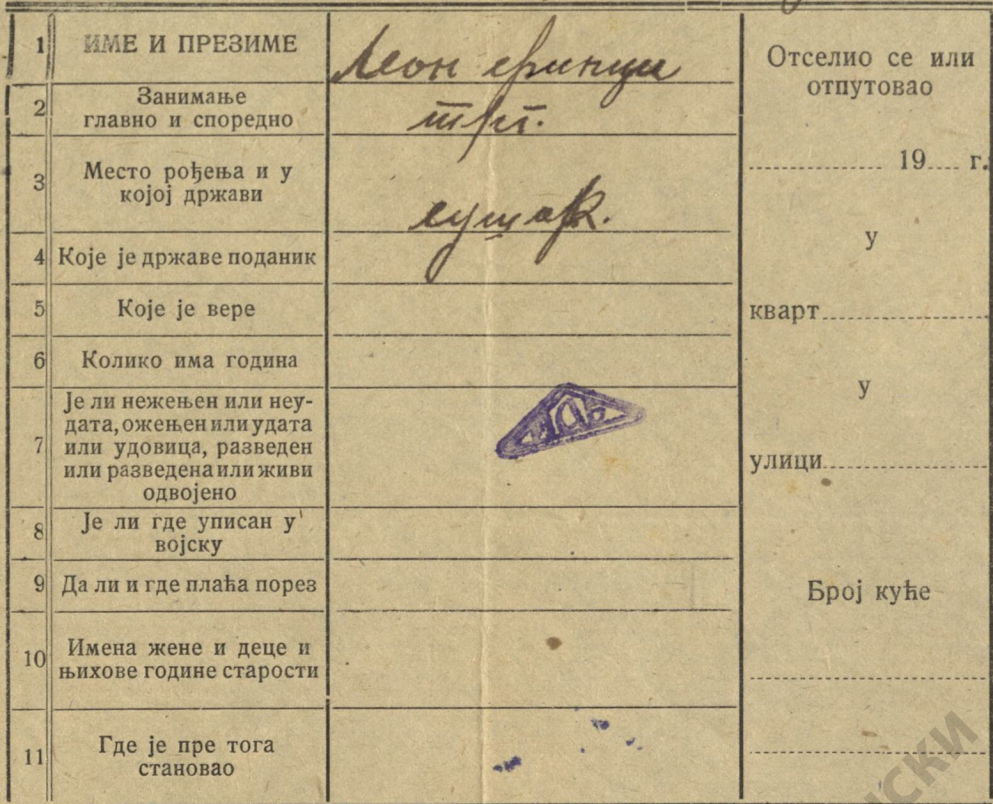 1 ИМЕ И ПРЕЗИМЕ Леон
2 Занимање
главно и споредно трг.
3 Место рођења и у
којој држави сушак.
4 Које је државе поданик
5 Које је вере
6 Колико има година
7 Је ли нежењен или неу-
дата, ожењен или удата
или удовица, разведен
или разведена или живи
одвојено
8 Је ли где уписан у
војску
9 Да ли и где плаћа порез
10 Имена жене и деце и
њихове године старости
11 Где је пре тога
становао
Отселио се или
отпутовао
19 г.
у
кварт
у
улици
Број куће